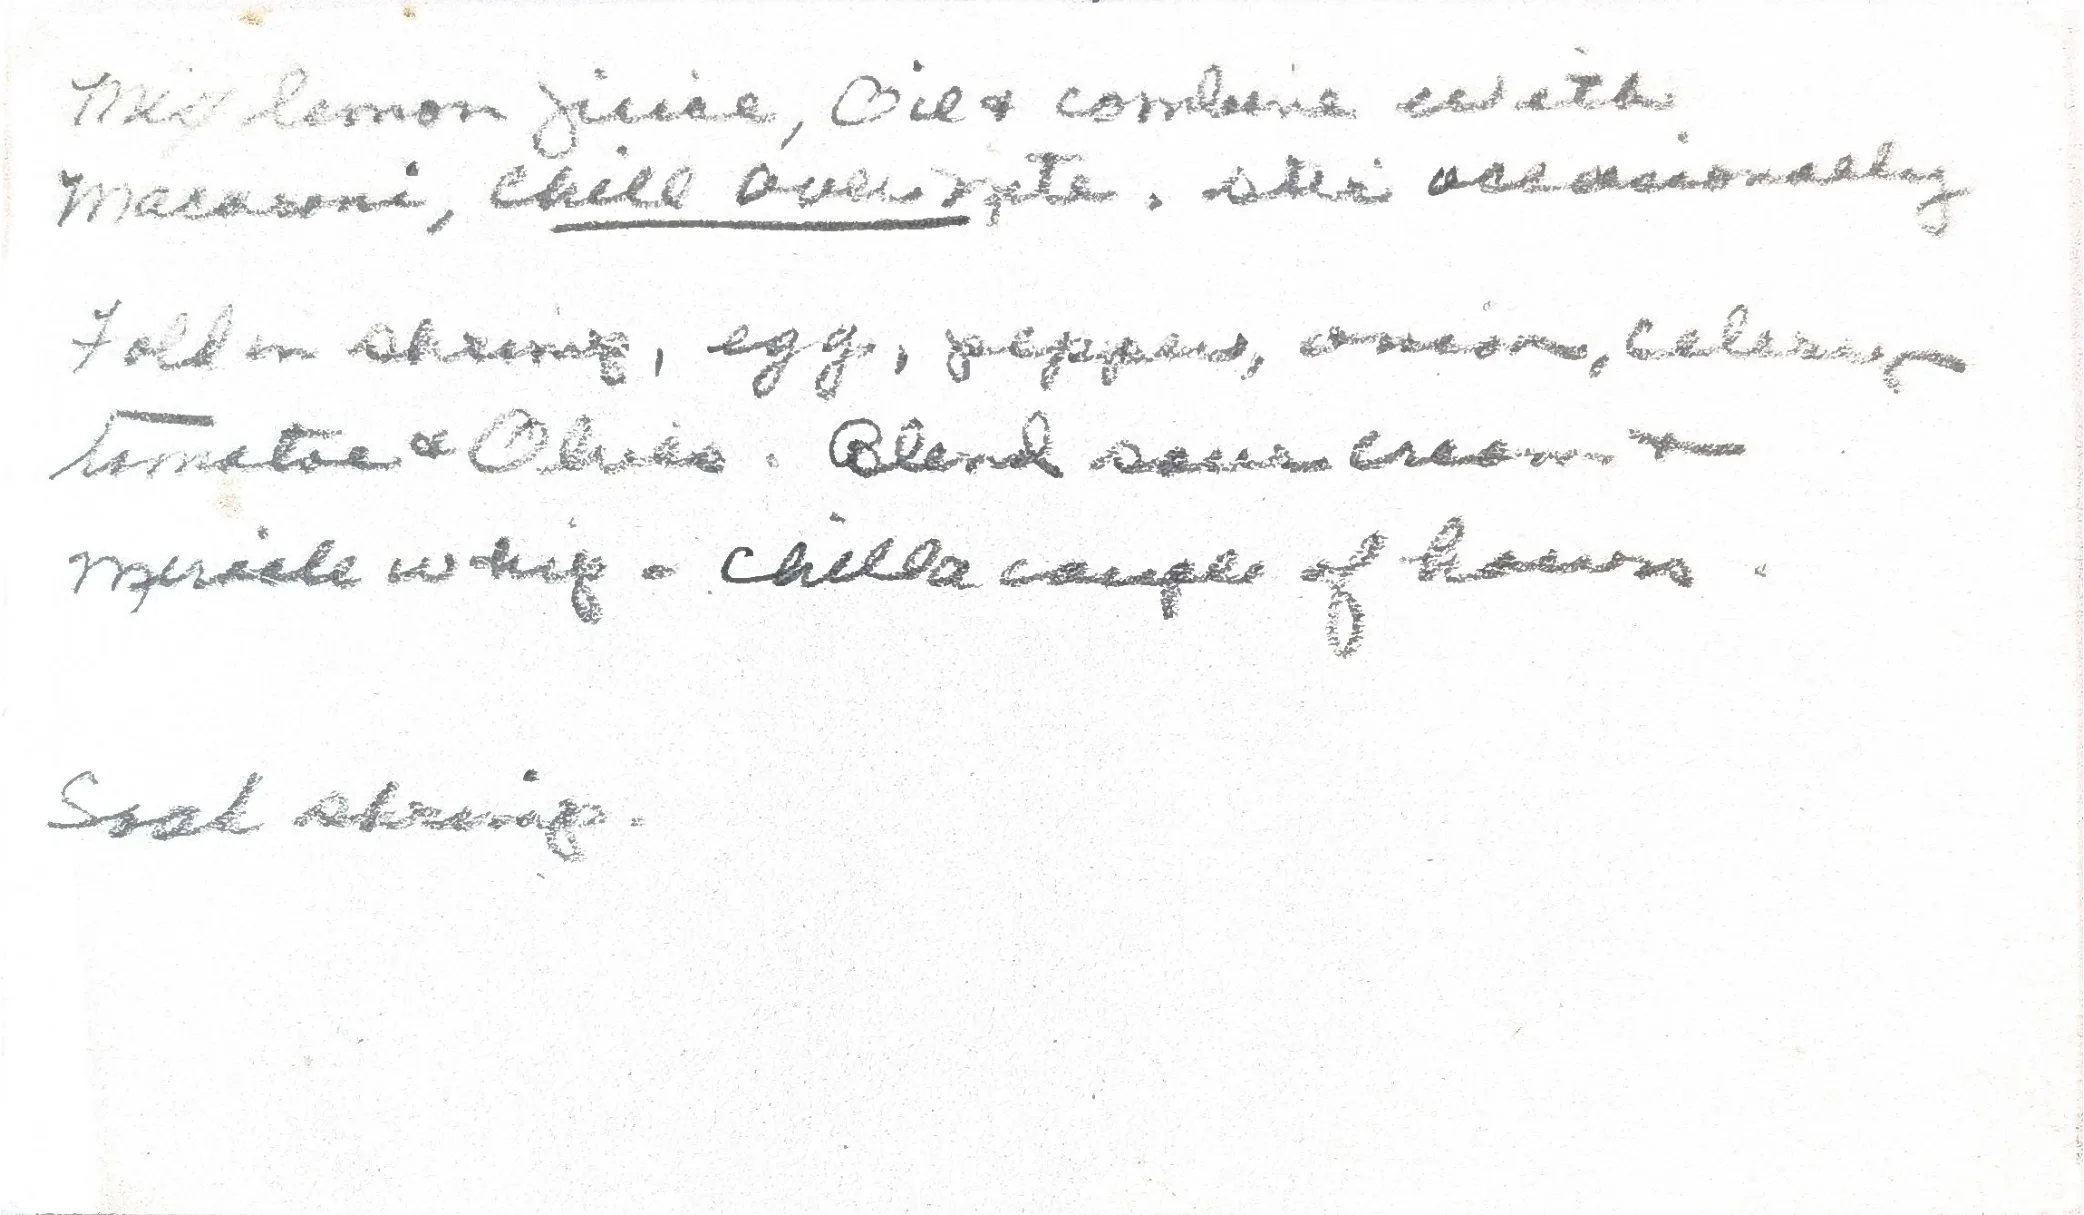 Mix lemon juice, Oil & combine with
Macaroni, Chill over nite. Stir occasionally
Fold in shrimp, egg, peppers, onion, celery
tomatoe & Olives. Blend sour cream &
Miricle whip - Chill a couple of hours.
Soak shrimp.